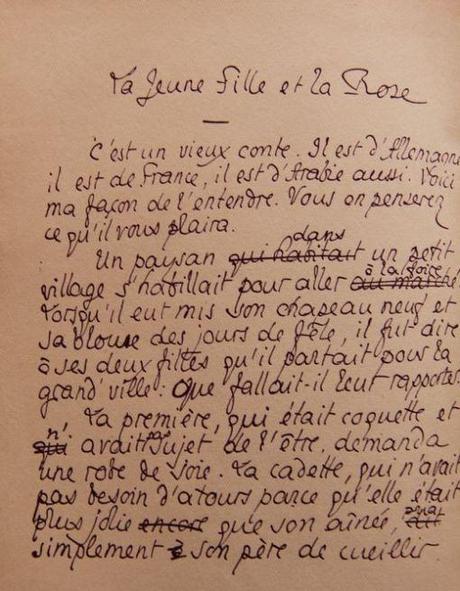 La Jeune Fille et la Rose
C'est un vieux conte. Il est d'Allemagne
il est de France, il est d'Arabie aussi. Voici
ma façon de l'entendre. Vous en penserez
ce qu'il vous plaira.
Un paysan qui habitait dans un petit
village s'habillait pour aller au marché à la foire.
Lorsqu'il eut mis son chapeau neuf et
sa blouse des jours de fête, il fut dire
à ses deux filles qu'il partait pour la
grand'ville : Que fallait-il leur rapporter
La première, qui était coquette et
qui n'avait pas sujet de l'être, demanda
une robe de soie. La cadette, qui n'avait
pas besoin d'atours parce qu'elle était
plus jolie encore que son aînée,
simplement à son père de cueillir